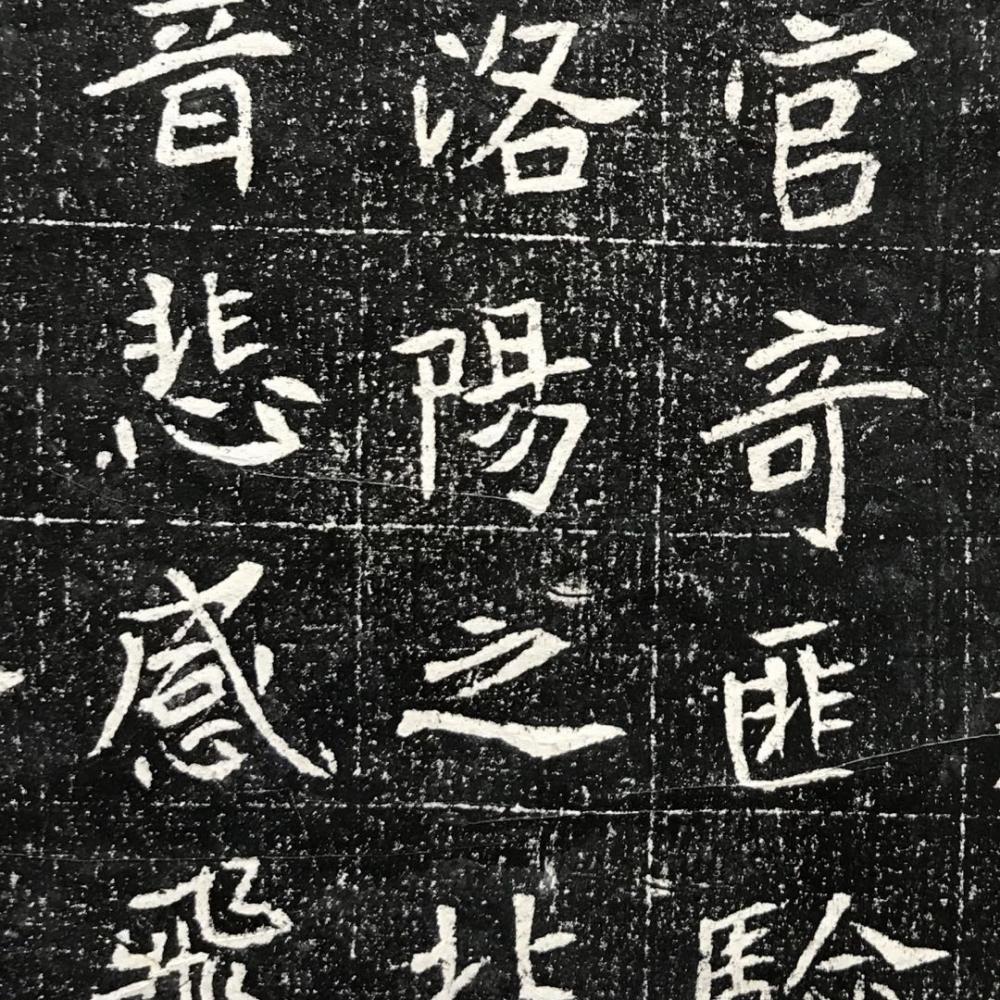 官奇匪驗
洛陽之北
音悲感飛